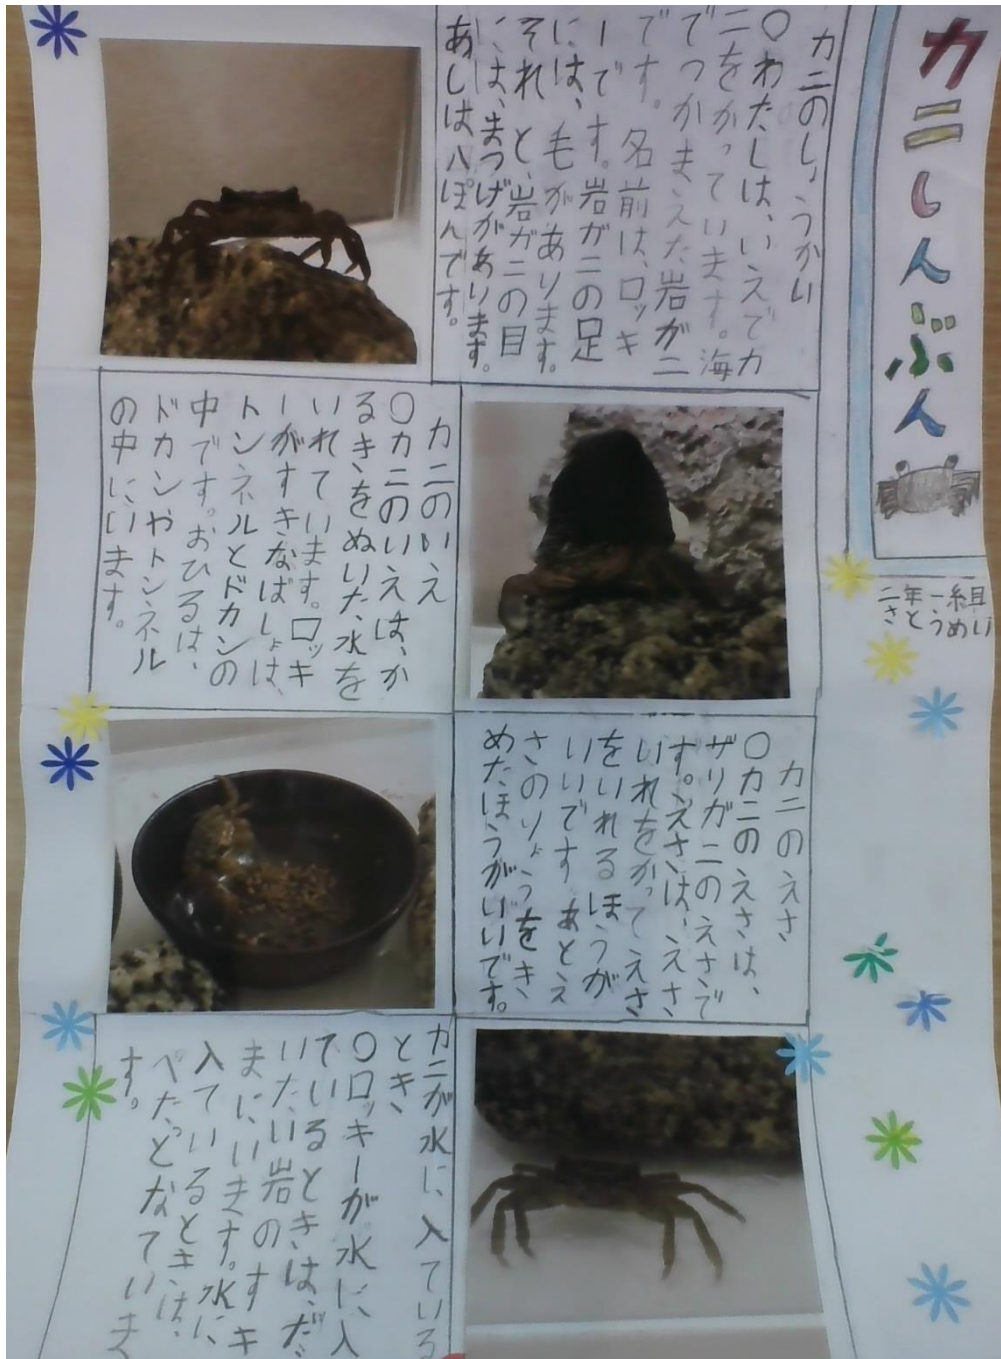 カニしんぶん
二年一組
さとうめい
カニのしょうかい
○わたしは、いえでカ
ニをかっています。海
でつかまえた岩がニ
です。名前は、ロッキ
ーです。岩ガニの足
には、毛があります。
それと、岩ガニの目
には、まつげがあります。
あしは八ぽんです。
カニのいえ
○カニのいえは、か
るきをぬいた、水を
いれています。ロッキ
ーがすきなばしょは、
トンネルとドカンの
中です。おひるは、
ドカンやトンネル
の中にいます。
カニのえさ
○カニのえさは、
ザリガニのえさで
す。えさは、えさ
いれをかってえさ
をいれるほうが
いいです。あとえ
さのりょうをき
めたほうがいいです。
カニが水に入ている
とき
○ロッキーが水に、入
ているときは、だ
いたい岩のすキ
まにいます。水に
入ているときは、
ぺたっとなていま
す。